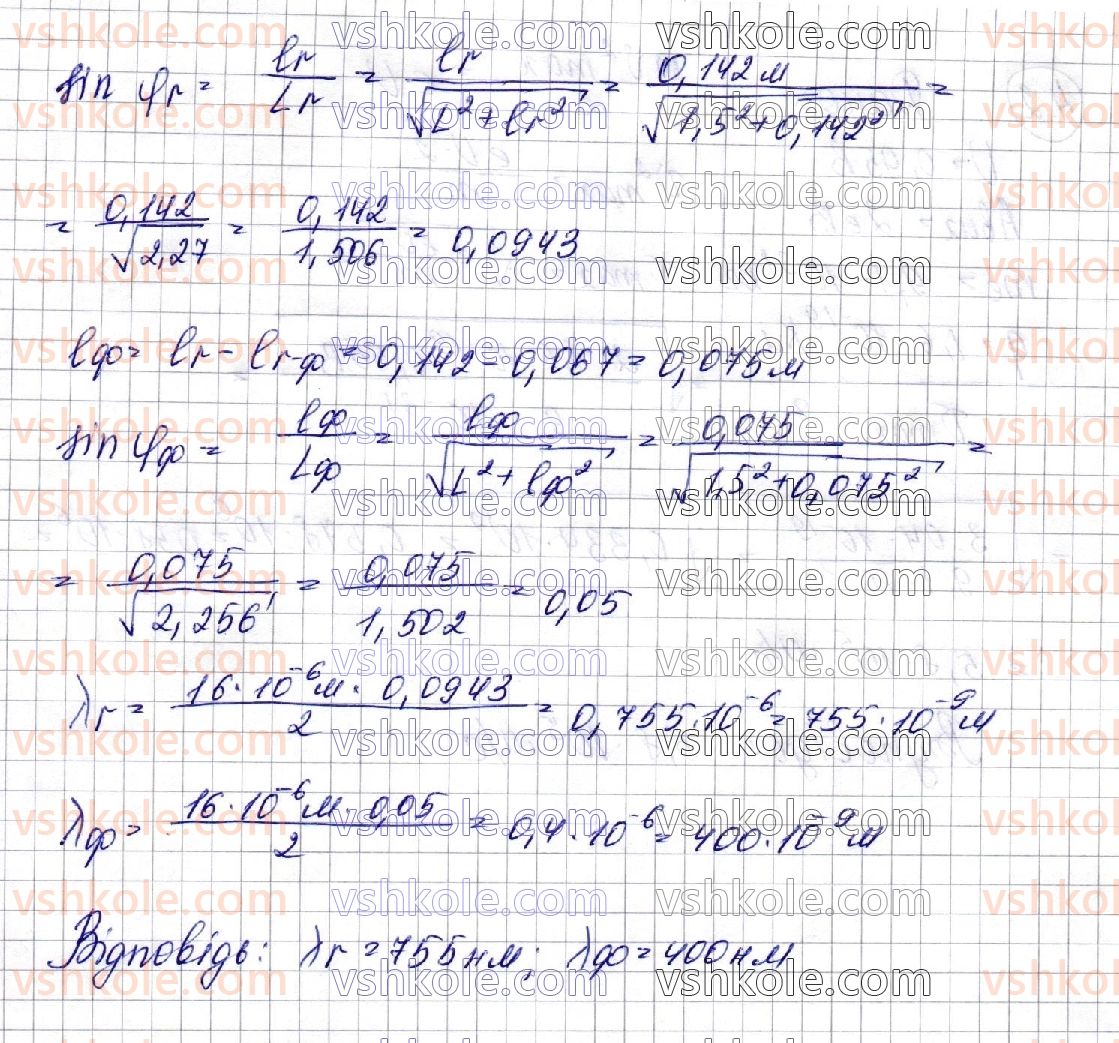 vshkole.com vshkole.com vshkole.com vshkole.com
sin φr = lr/Lr = lr/√(L²+lr²) = 0,142м/√(1,5²+0,142²) =
= 0,142/√2,27 = 0,142/1,506 = 0,0943
lф = lr - lr-ф = 0,142 - 0,067 = 0,075м
sin φф = lф/Lф = lф/√(L²+lф²) = 0,075/√(1,5²+0,075²) =
= 0,075/√2,256 = 0,075/1,502 = 0,05
λr = 16·10⁻⁶м·0,0943/2 = 0,755·10⁻⁶ = 755·10⁻⁹м
λф = 16·10⁻⁶м·0,05/2 = 0,4·10⁻⁶ = 400·10⁻⁹м
Відповідь: λr = 755нм; λф = 400нм